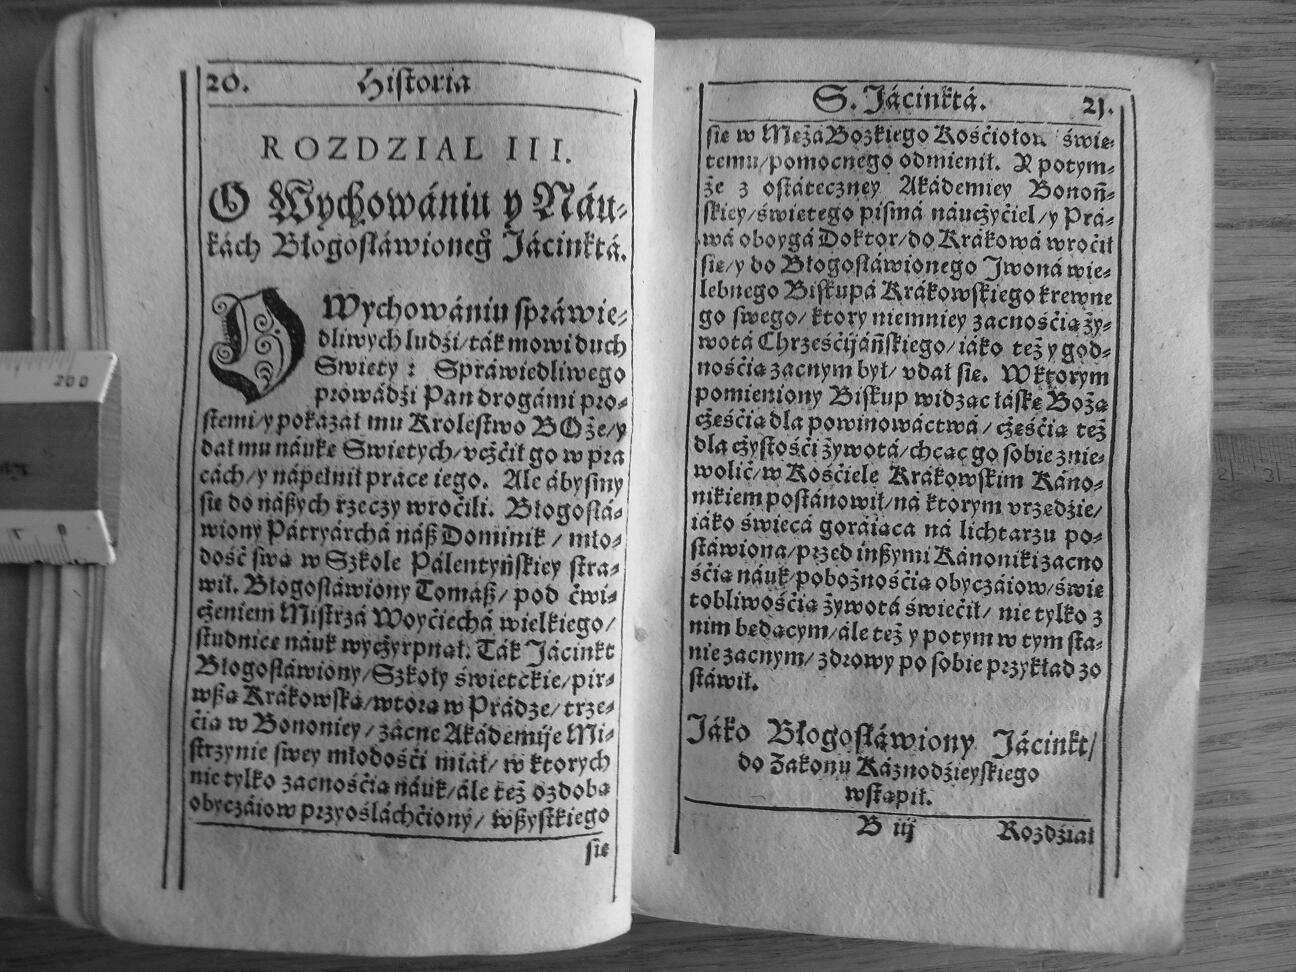 20. Historia
ROZDZIAL III.
O Wychowániu y Náu-
kách Błogosłáwioneg̊ Jácinktá.
O Wychowániu spráwie-
dliwych ludźi/ ták mowi duch
Swięty: Spráwiedliwego
prowádźi Pan drogámi pro-
stemi/ y pokazał mu Krolestwo BOże/ y
dał mu náukę Swiętych/ vczćił go w pra
cách/ y nápełnił prace iego. Ale ábysmy
się do nászych rzeczy wroćili. Błogosłá-
wiony Pátryárchá nász Dominik/ mło-
dość swą w Szkole Pálentyńskiey stra-
wił. Błogosłáwiony Tomász/ pod ćwi-
czeniem Mistrzá Woyćiechá wielkiego/
studnice náuk wyczyrpnął. Ták Jácinkt
Błogosłáwiony/ Szkoły świetckie/ pir-
wszą Krákowską/ wtorą w Prádze/ trze-
ćią w Bononiey/ zacne Akádemije Mi-
strzynie swey młodośći miał/ w ktorych
nie tylko zacnośćią náuk/ ále też ozdobą
obyczáiow przyośláchćiony/ wszystkiego
się
S. Jácinktá. 21.
się w Mężá Bozkiego Kośćiołow święte-
temu/ pomocnego odmienił. A potym-
że z ostáteczney Akádemiey Bonoń-
skiey/ świętego pismá náuczyćiel/ y Prá-
wá oboygá Doktor/ do Krákowá wroćił
się/ y do Błogosłáwionego Jwoná wie-
lebnego Biskupá Krákowskiego krewne
go swego/ ktory niemniey zacnośćią ży-
wotá Chrześćijáńskiego/ iáko też y god-
nośćią zacnym był/ vdał się. W ktorym
pomieniony Biskup widząc łáskę Bożą
częśćią dla powinowáctwá/ częśćią też
dla czystośći żywotá/ chcąc go sobie znie-
wolić/ w Kośćiele Krákowskim Káno-
nikiem postánowił/ ná ktorym vrzędźie/
iáko świecá goráiąca ná lichtarzu po-
stáwiona/ przed inszymi Kánoniki zacno
śćią náuk/ pobożnośćią obyczáiow/ świę
tobliwośćią żywotá świećił/ nie tylko z
nim będącym/ ále też y potym w tym sta-
nie zacnym/ zdrowy po sobie przykład zo
stáwił.
Jáko Błogosłáwiony Jácinkt/
do Zakonu Káznodźieyskiego
wstąpił.
B iij Rozdźiał